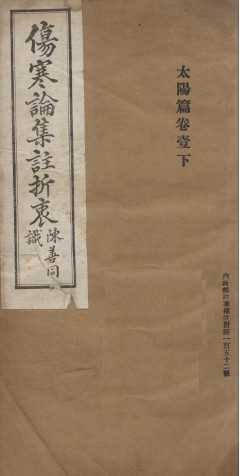 傷寒論集註折衷
陳善同
識
太陽篇卷壹下
內政部註著權註冊第一百五十二號